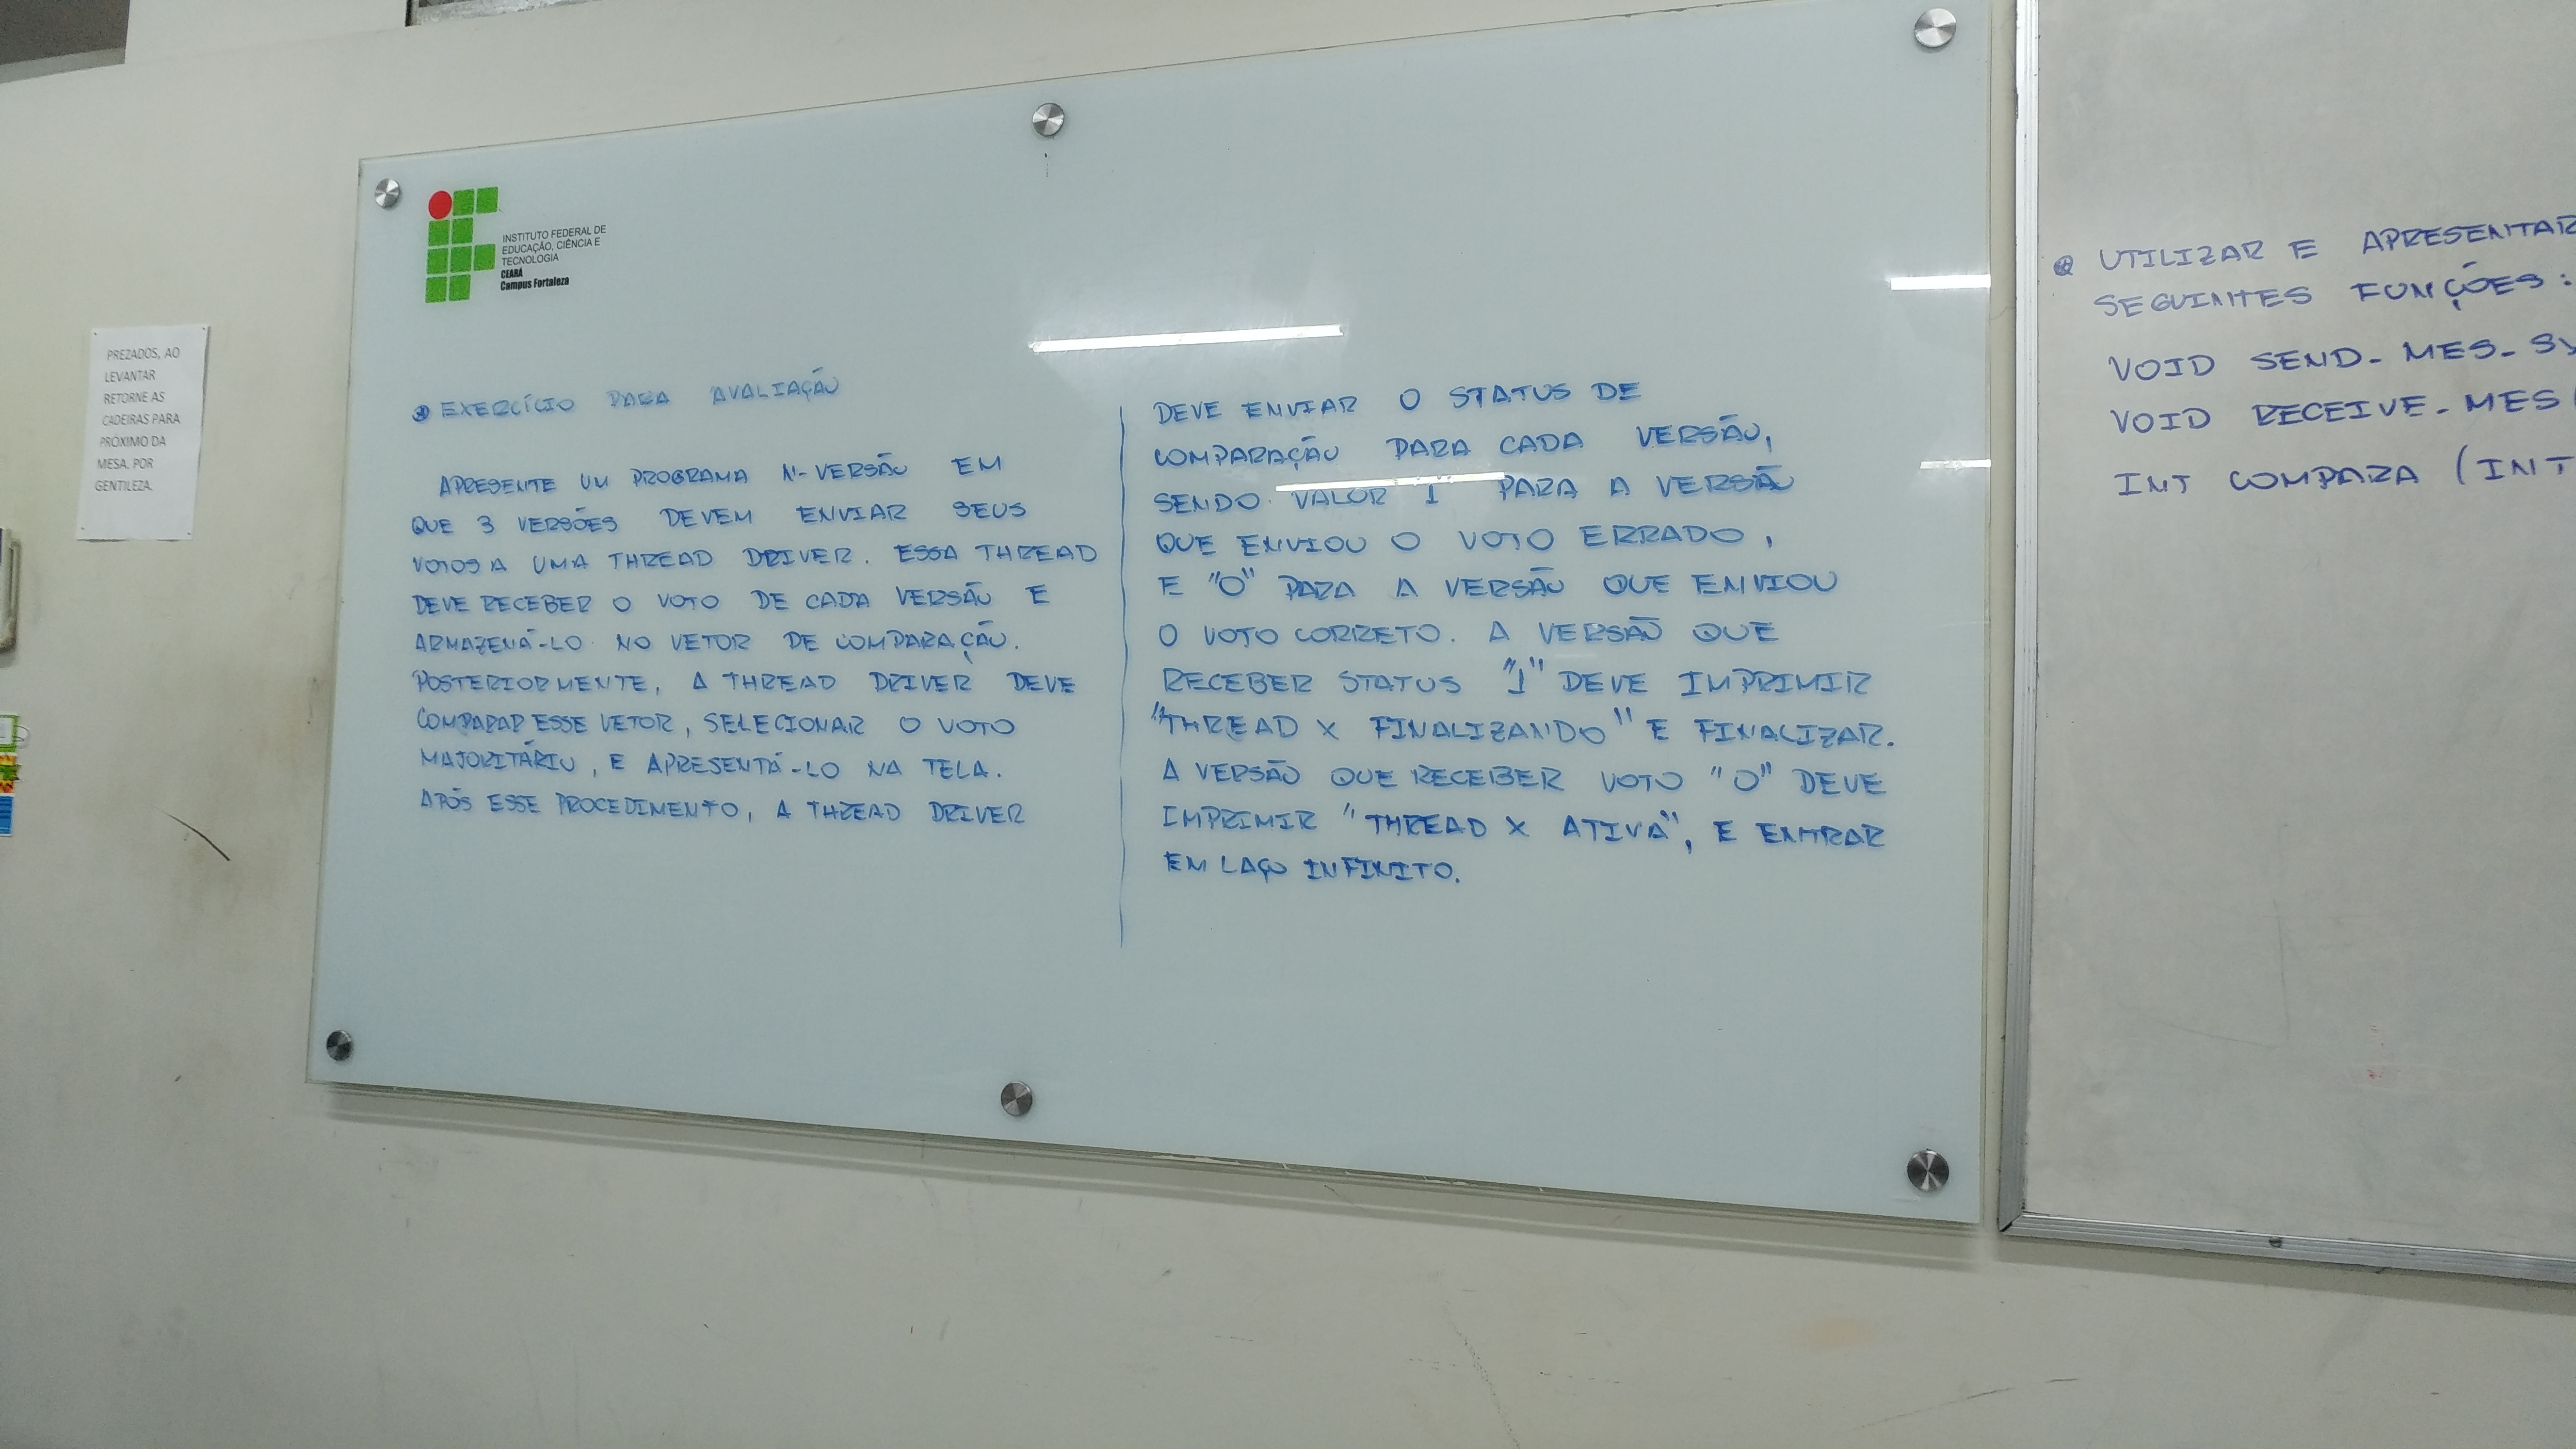 PREZADOS, AO
LEVANTAR
RETORNE AS
CADEIRAS PARA
PRÓXIMO DA
MESA. POR
GENTILEZA.
INSTITUTO FEDERAL DE
EDUCAÇÃO, CIÊNCIA E
TECNOLOGIA
CEARÁ
Campus Fortaleza
EXERCÍCIO PARA AVALIAÇÃO
APRESENTE UM PROGRAMA N-VERSÃO EM
QUE 3 VERSÕES DEVEM ENVIAR SEUS
VOTOS A UMA THREAD DRIVER. ESSA THREAD
DEVE RECEBER O VOTO DE CADA VERSÃO E
ARMAZENÁ-LO NO VETOR DE COMPARAÇÃO.
POSTERIORMENTE, A THREAD DRIVER DEVE
COMPARAR ESSE VETOR, SELECIONAR O VOTO
MAJORITÁRIO, E APRESENTÁ-LO NA TELA.
APÓS ESSE PROCEDIMENTO, A THREAD DRIVER
DEVE ENVIAR O STATUS DE
COMPARAÇÃO PARA CADA VERSÃO,
SENDO VALOR "1" PARA A VERSÃO
QUE ENVIOU O VOTO ERRADO,
E "0" PARA A VERSÃO QUE ENVIOU
O VOTO CORRETO. A VERSÃO QUE
RECEBER STATUS "1" DEVE IMPRIMIR
"THREAD X FINALIZANDO" E FINALIZAR.
A VERSÃO QUE RECEBER VOTO "0" DEVE
IMPRIMIR "THREAD X ATIVA", E ENTRAR
EM LAÇO INFINITO.
UTILIZAR E APRESENTAR
SEGUINTES FUNÇÕES:
VOID SEND_MES_SY
VOID RECEIVE_MES(
INT COMPARA (INT